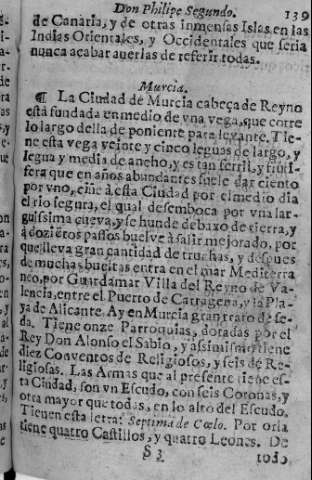 Don Philipe Segundo. 139
de Canaria, y de otras inmensas Islas en las
Indias Orientales, y Occidentales que seria
nunca acabar auerlas de referir todas.
Murcia.
¶ La Ciudad de Murcia cabeça de Reyno
està fundada en medio de vna vega, que corre
lo largo della de poniente para levante. Tie-
ne esta vega veinte y cinco leguas de largo, y
legua y media de ancho, y es tan fertil, y fruti-
fera que en años abundantes suele dar ciento
por vno, ciñe à esta Ciudad por el medio dia
el rio segura, el qual desemboca por vna lar-
guissima cueva, y se hunde debaxo de tierra, y
à dozientos passos buelve à salir mejorado, por
que lleva gran cantidad de truchas, y despues
de muchas bueltas entra en el mar Mediterra
neo, por Guardamar Villa del Reyno de Va-
lencia, entre el Puerto de Cartagena, y la Pla-
ya de Alicante. Ay en Murcia gran trato de se-
da. Tiene onze Parroquias, dotadas por el
Rey Don Alonso el Sabio, y assimismo tiene
diez Conventos de Religiosos, y seis de Re-
ligiosas. Las Armas que al presente tiene es-
ta Ciudad, son vn Escudo, con seis Coronas, y
otra mayor que todas, en lo alto del Escudo.
Tienen esta letra: Septima de Cœlo. Por orla
tiene quatro Castillos, y quatro Leones. De
§ 3. todo